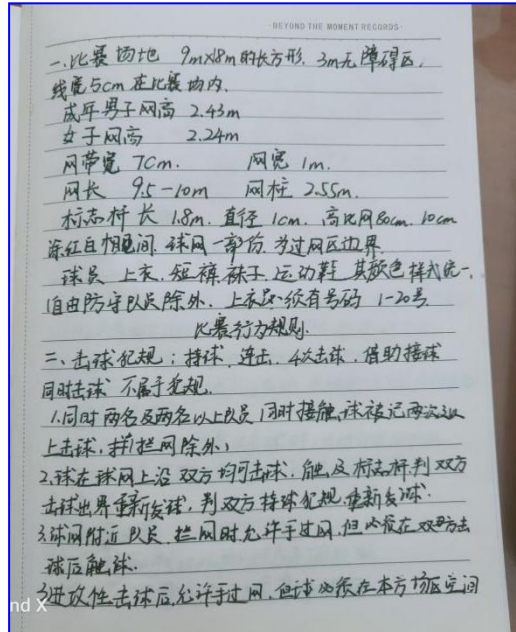 BEYOND THE MOMENT RECORDS
一.比赛场地 9m×18m的长方形. 3m无障碍区,
线宽5cm在比赛场内.
成年男子网高 2.43m
女子网高 2.24m
网带宽 7cm. 网宽 1m.
网长 9.5-10m 网柱 2.55m.
标志杆长 1.8m. 直径 1cm. 高比网80cm. 10cm
涂红白相见间. 球网一部份. 为过网区边界.
球员 上衣. 短裤. 袜子. 运动鞋 其颜色样式统一.
自由防守队员除外. 上衣必须有号码 1-20号.
比赛行为规则.
二、击球犯规:持球. 连击. 4次击球. 借助接球
同时击球 不属于犯规.
1.同时两名及两名以上队员 同时接触,球被记两次
上击球.拦网除外;
2.球在球网上沿 双方均可击球. 触及标志杆判双方
击球出界重新发球,判双方持球犯规重新发球.
3.球网附近队员.拦网时允许手过网.但必须在双方击
球后触球.
进攻性击球后,允许手过网,但球必须在本方场区空间
nd X